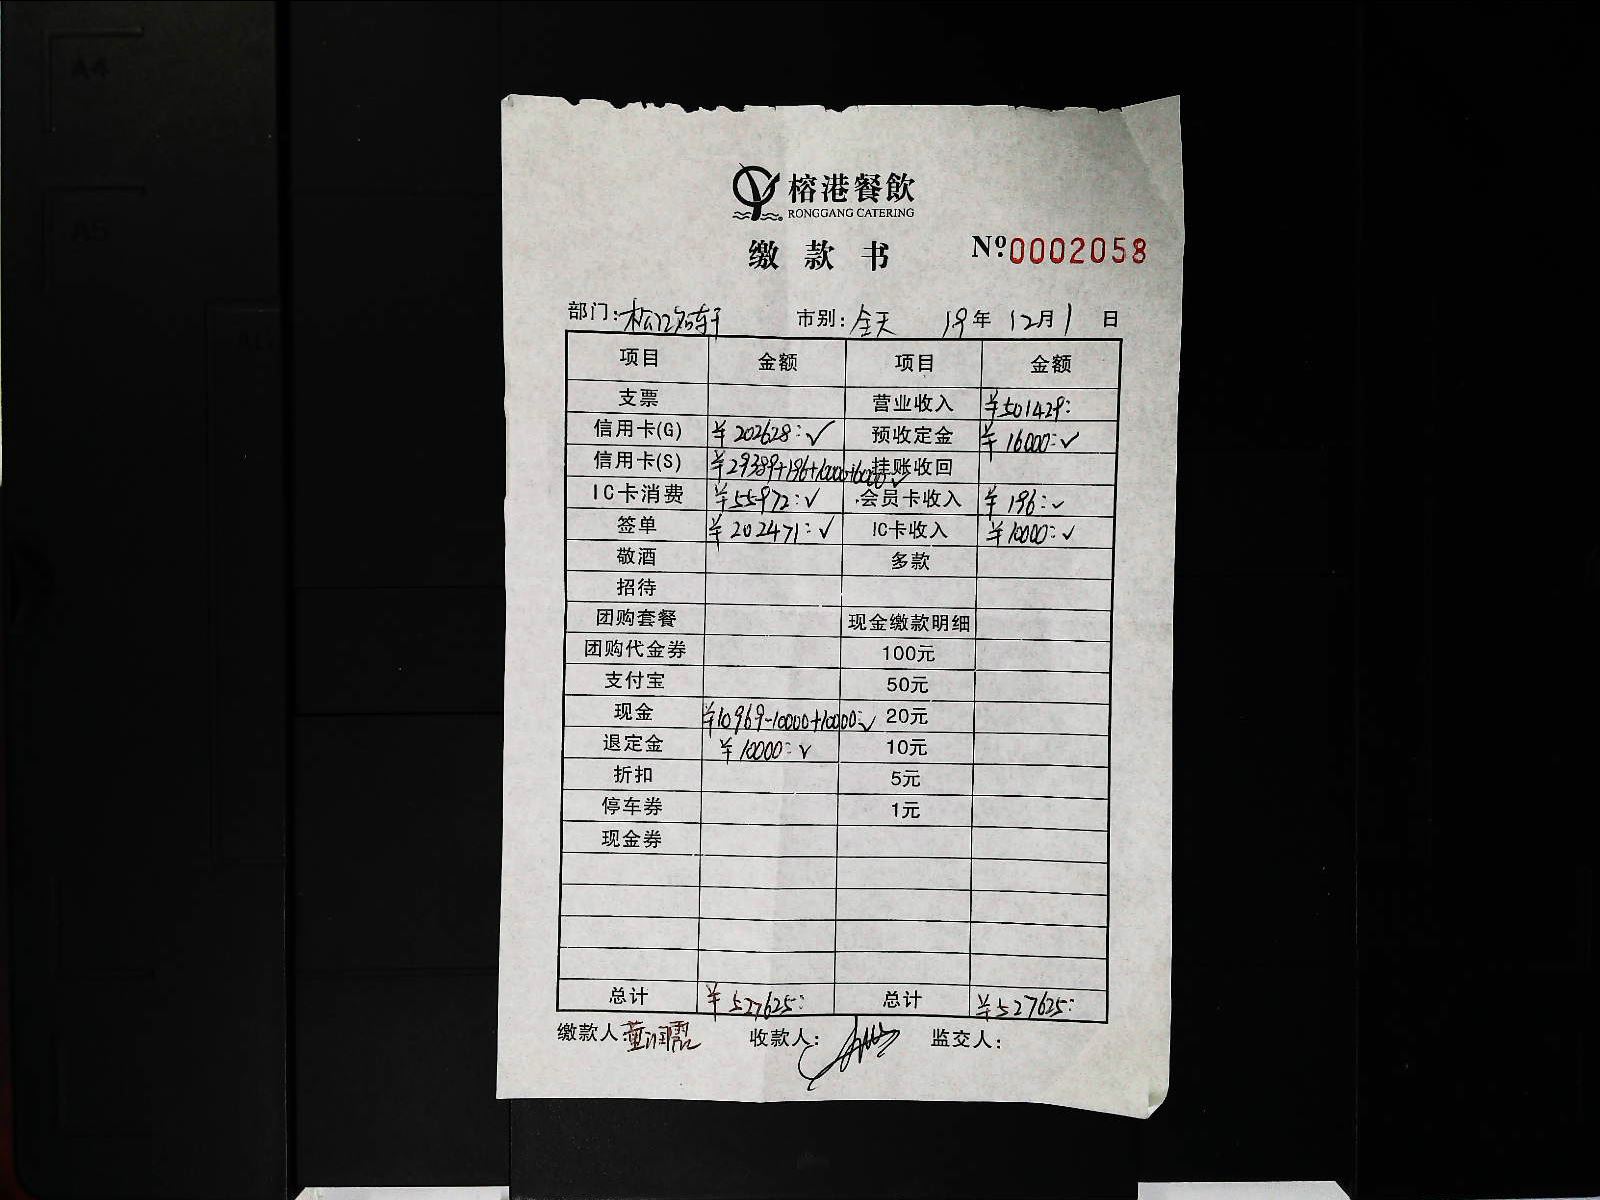 榕港餐飲
RONGGANG CATERING
缴款书 Nº:0002058
部门: 市别:全天 19年12月1日
项目 金额 项目 金额
支票 营业收入 ¥501429:
信用卡(G) ¥202628:✓ 预收定金 ¥16000:✓
信用卡(S) ¥29389+196+10000+6000:✓ 挂账收回
IC卡消费 ¥55972:✓ 会员卡收入 ¥196:✓
签单 ¥202471:✓ IC卡收入 ¥10000:✓
敬酒 多款
招待
团购套餐 现金缴款明细
团购代金券 100元
支付宝 50元
现金 ¥10969-10000+10000:✓ 20元
退定金 ¥10000:✓ 10元
折扣 5元
停车券 1元
现金券
总计 ¥527625: 总计 ¥527625:
缴款人: 收款人: 监交人:
A4
A5